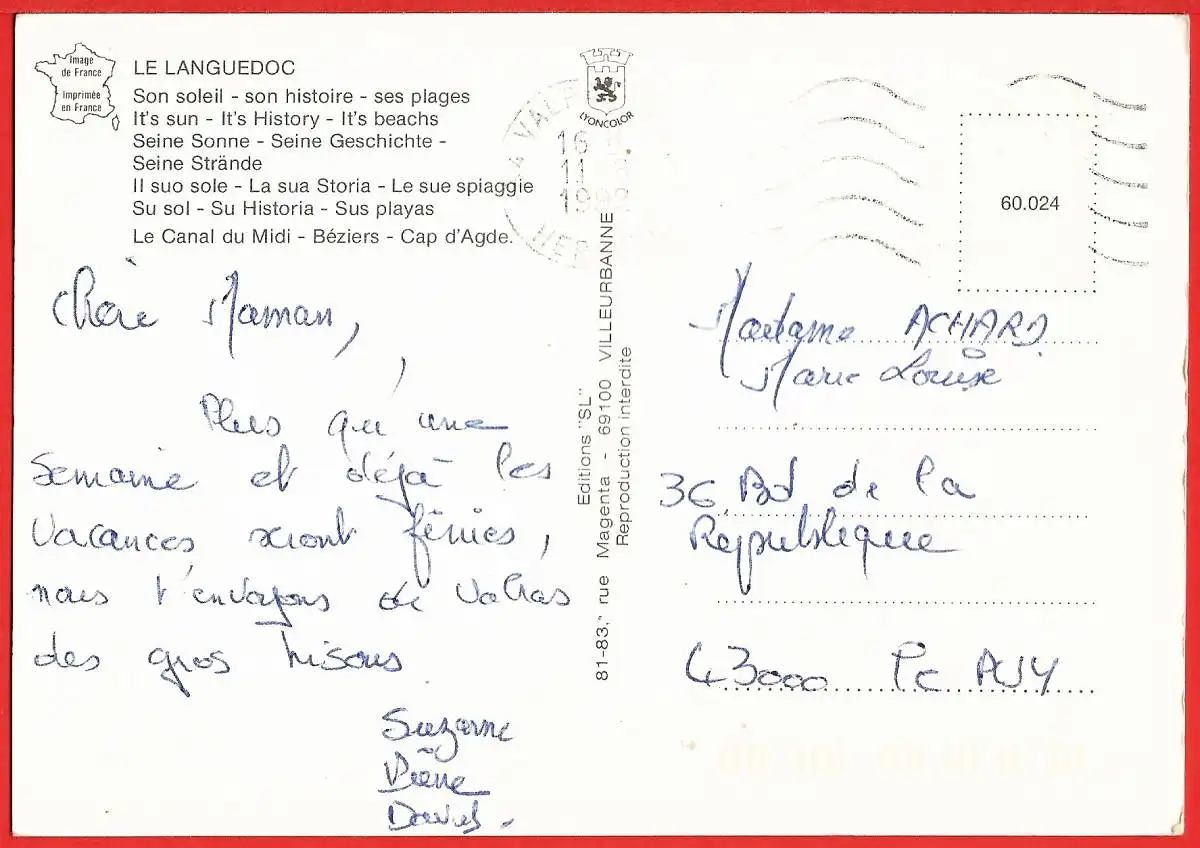 Image
de France
Imprimée
en France
LE LANGUEDOC
Son soleil - son histoire - ses plages
It's sun - It's History - It's beachs
Seine Sonne - Seine Geschichte -
Seine Strände
Il suo sole - La sua Storia - Le sue spiaggie
Su sol - Su Historia - Sus playas
Le Canal du Midi - Béziers - Cap d'Agde.
Chère Maman,
Plus qu'une
semaine et déjà les
vacances seront finies,
nous t'envoyons de Valras
des gros bisous
Suzanne
Pierre
David.
LYONCOLOR
16
11
Editions "SL"
81-83, rue Magenta - 69100 VILLEURBANNE
Reproduction interdite
60.024
Madame ACHARD
Marie Louise
36 Bd de la
République
43000 Le PUY